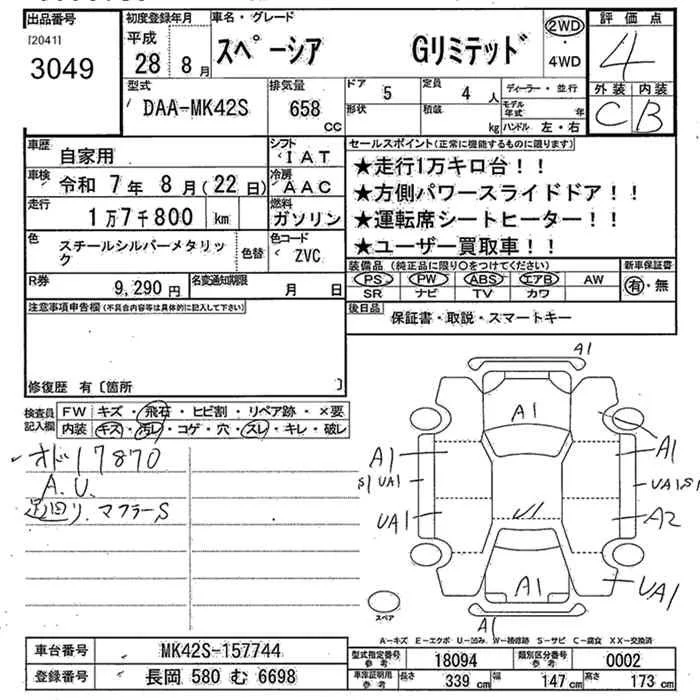 出品番号
[2041]
3049
初度登録年月
平成
28 8月
車名・グレード
スペーシア Gリミテッド
2WD
・
4WD
評価点
4
外装 内装
C B
型式
DAA-MK42S
排気量
658
CC
ドア 5
定員 4 人
形状
積載 kg
ディーラー・並行
モデル年式 年
ハンドル 左・右
車歴 自家用
シフト IAT
車検 令和 7年 8月(22日)
冷房 AAC
走行 1万7千800 km
燃料 ガソリン
色 スチールシルバーメタリック
色替
色コード ZVC
R券 9,290円
名変通知期限 月 日
セールスポイント(正常に機能するものに限ります)
★走行1万キロ台!!
★方側パワースライドドア!!
★運転席シートヒーター!!
★ユーザー買取車!!
装備品(純正品に限り○をつけてください)
PS PW ABS エアB AW
SR ナビ TV カワ
新車保証書
有・無
後日品 保証書・取説・スマートキー
注意事項申告欄(不具合内容等は具体的に記入して下さい)
修復歴 有〔箇所 〕
検査員記入欄
FW キズ・飛石・ヒビ割・リペア跡・×要
内装 キズ・汚レ・コゲ・穴・スレ・キレ・破レ
オド17870
A.U.
足回り、マフラーS
A1
A1
A1 A1
S1 UA1 UA1 S1
UA1 A2
U1
A1 UA1
A1
スペア
A-キズ E-エクボ U-凹み W-補修跡 S-サビ C-腐食 XX-交換済
車台番号 MK42S-157744
登録番号 長岡 580 む 6698
型式指定番号参考 18094
類別区分番号参考 0002
車庫証明用参考 長さ 339 cm 幅 147 cm 高さ 173 cm